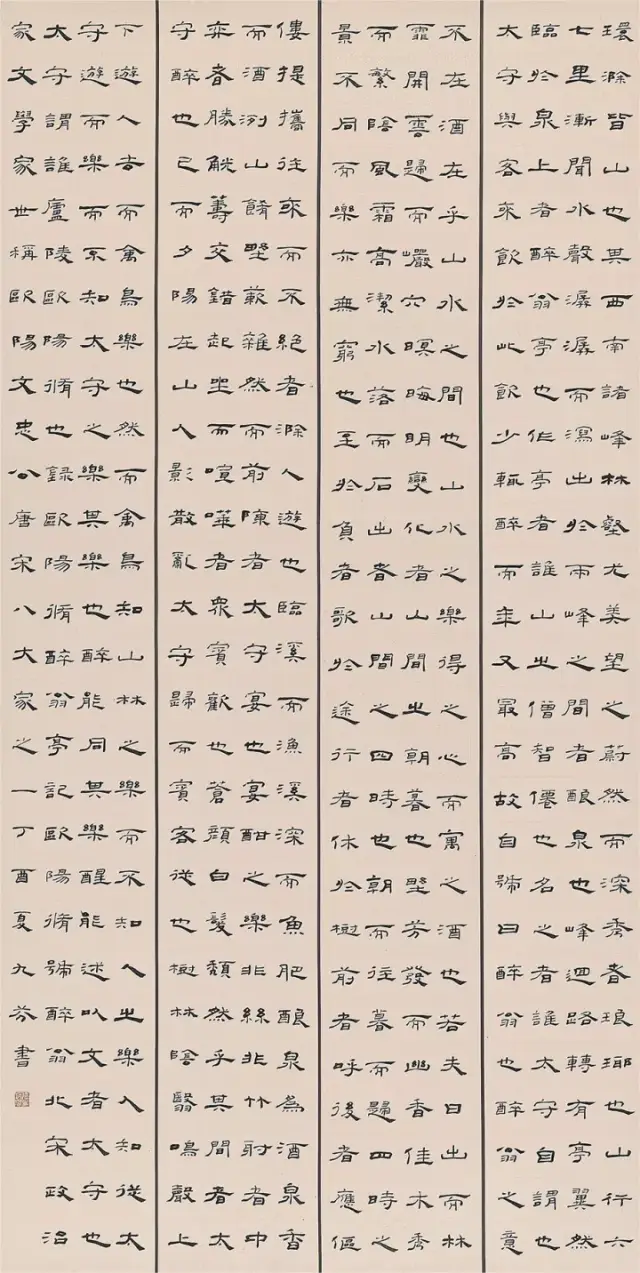 環滁皆山也其西南諸峰林壑尤美望之蔚然而深秀者琅琊也山行六
七里漸聞水聲潺潺而瀉出於兩峰之間者酿泉也峰迴路轉有亭翼然
臨於泉上者醉翁亭也作亭者誰山之僧智僊也名之者誰太守自謂也
太守與客來飲於此飲少輒醉而年又最高故自號曰醉翁也醉翁之意
不在酒在乎山水之間也山水之樂得之心而寓之酒也若夫日出而林
霏開雲歸而巖穴暝晦明變化者山間之朝暮也野芳發而幽香佳木秀
而繁陰風霜高潔水落而石出者山間之四時也朝而往暮而歸四時之
景不同而樂亦無窮也至於負者歌於途行者休於樹前者呼後者應傴
僂提攜往來而不絕者滁人遊也臨溪而漁溪深而魚肥酿泉為酒泉香
而酒洌山餚野蔌雜然而前陳者太守宴也宴酣之樂非絲非竹射者中
弈者勝觥籌交錯起坐而喧嘩者眾賓歡也蒼顏白髮頹然乎其間者太
守醉也已而夕陽在山人影散亂太守歸而賓客從也樹林陰翳鳴聲上
下遊人去而禽鳥樂也然而禽鳥知山林之樂而不知人之樂人知從太
守遊而樂而不知太守之樂其樂也醉能同其樂醒能述以文者太守也
太守謂誰廬陵歐陽脩也錄歐陽脩醉翁亭記歐陽脩號醉翁北宋政治
家文學家世稱歐陽文忠公唐宋八大家之一丁酉夏九芬書